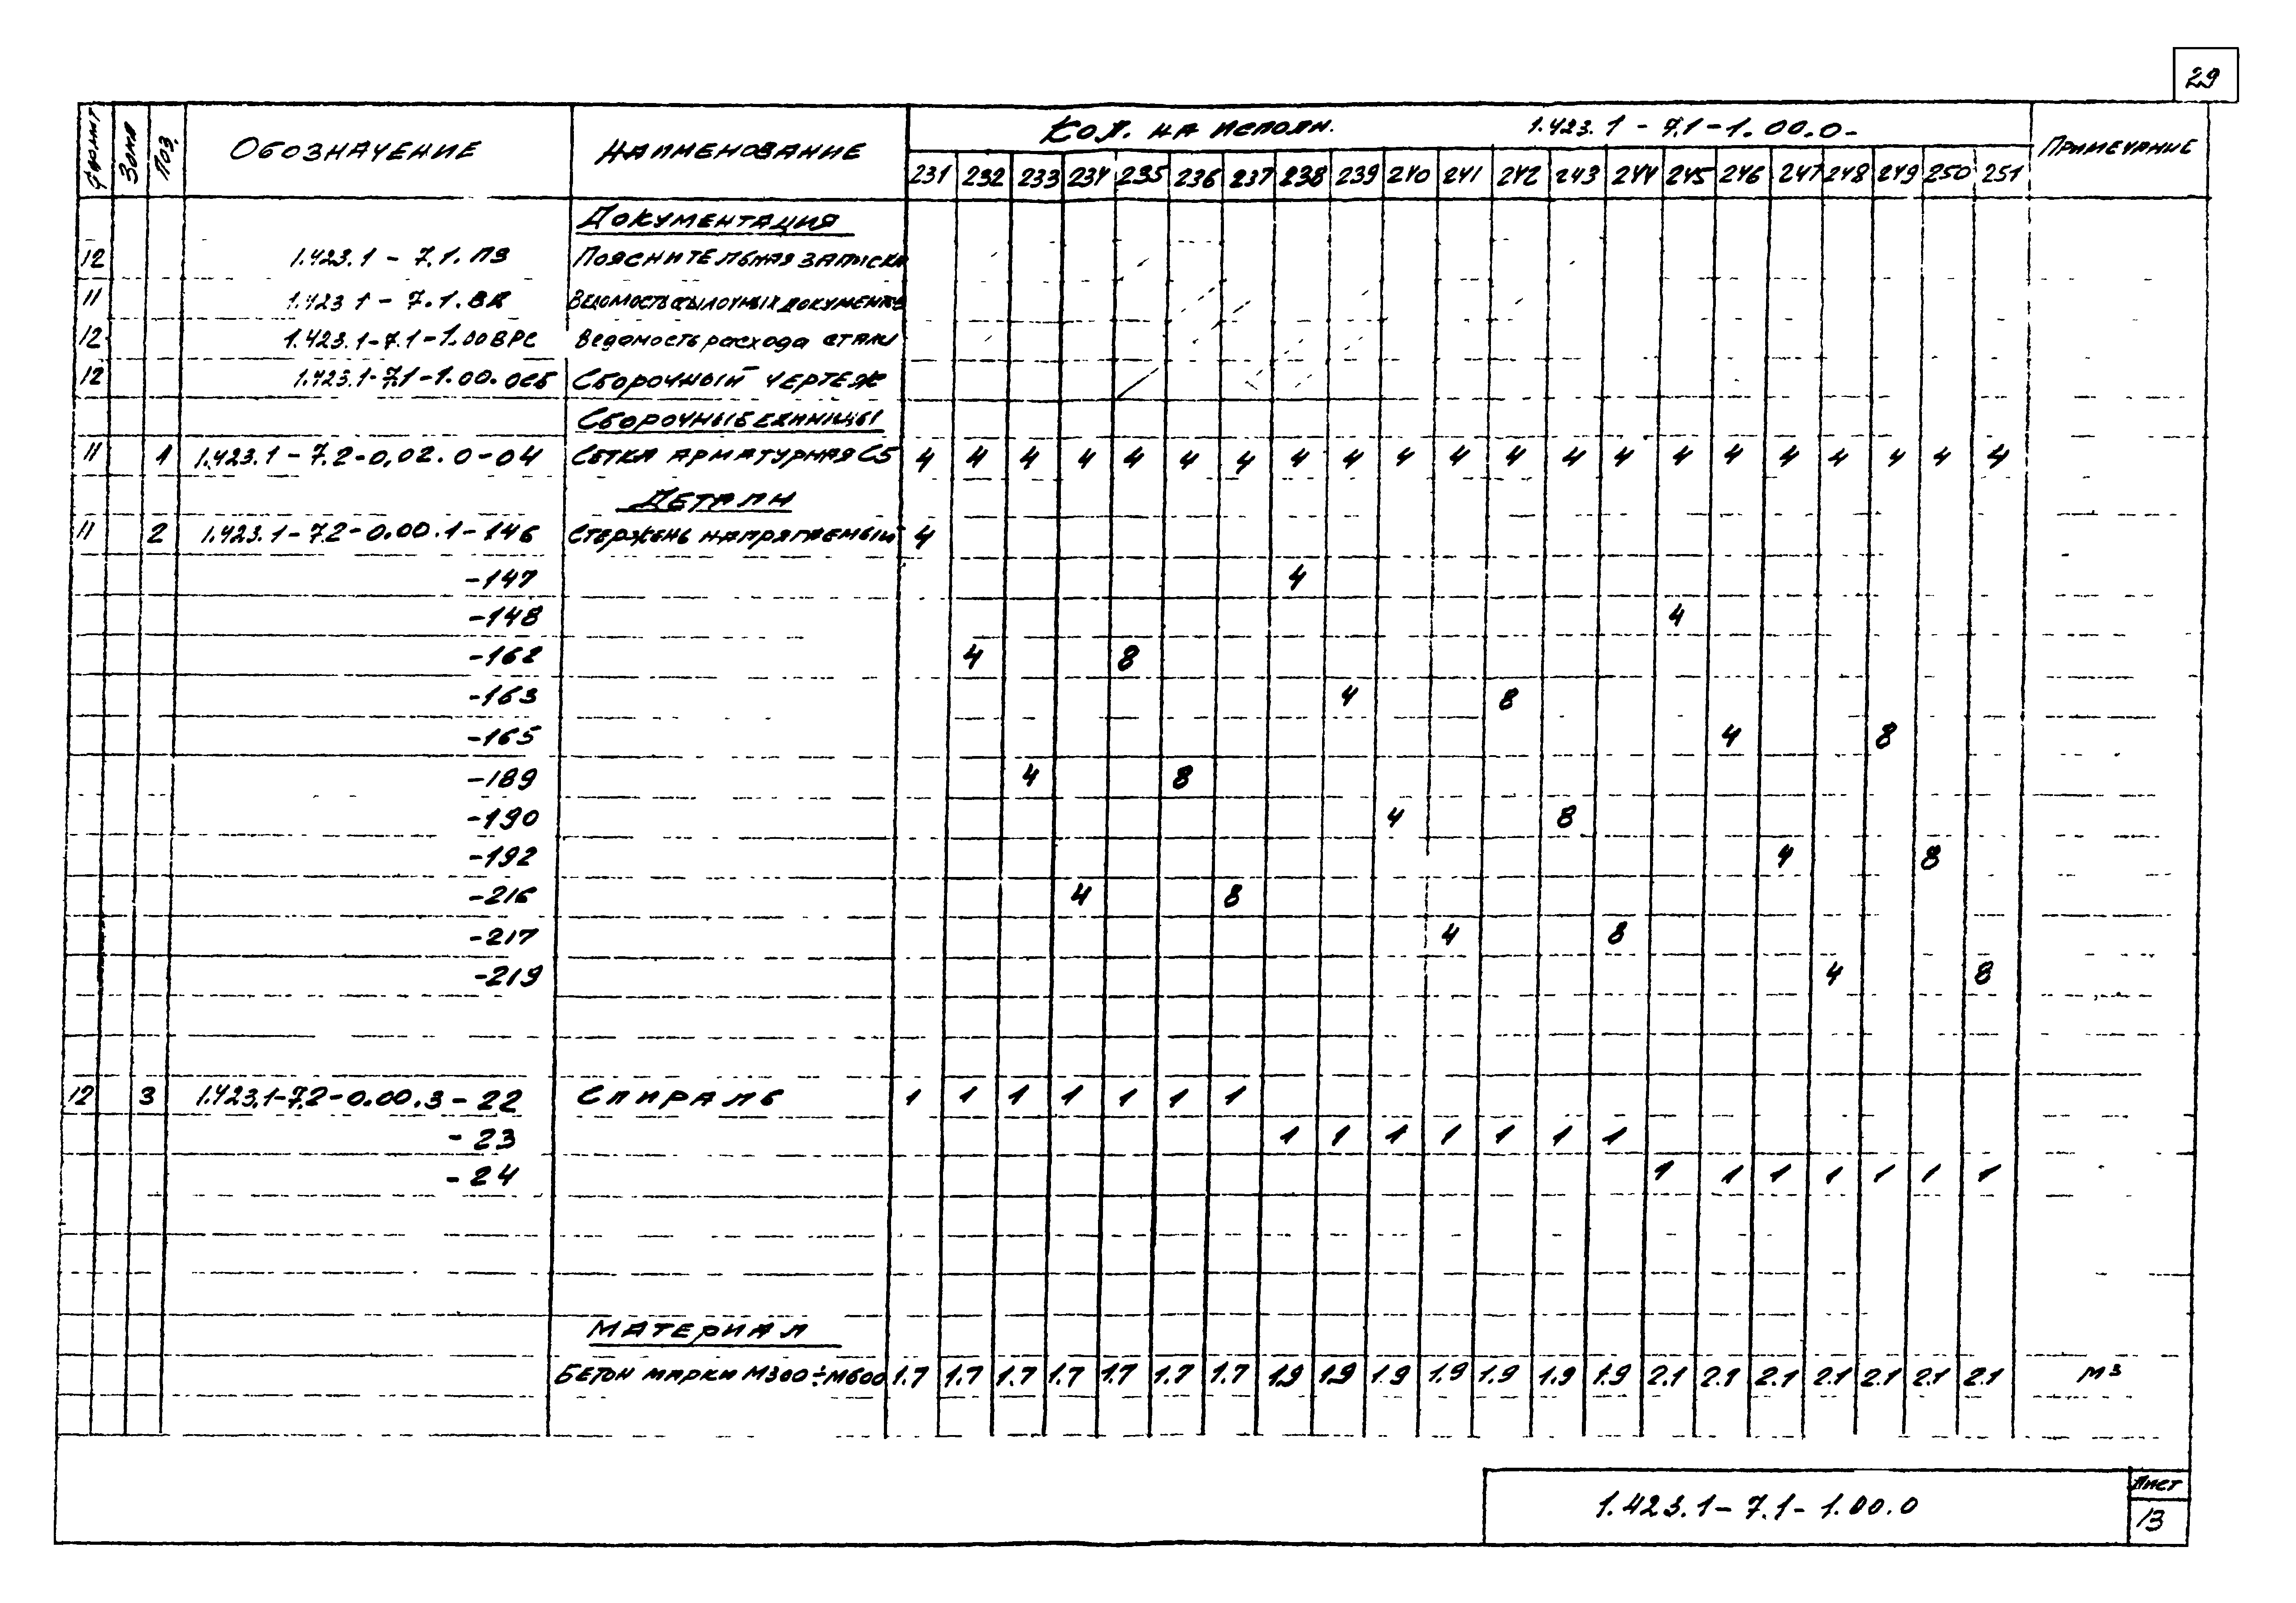 29
Формат Зона Поз. Обозначение Наименование Кол. на исполн. 1.423.1-7.1-1.00.0- Примечание
231 232 233 234 235 236 237 238 239 240 241 242 243 244 245 246 247 248 249 250 251
Документация
12 1.423.1-7.1.ПЗ Пояснительная записка
11 1.423.1-7.1.ВД Ведомость ссылочных документов
12 1.423.1-7.1-1.00ВРС Ведомость расхода стали
12 1.423.1-7.1-1.00.0СБ Сборочный чертеж
Сборочные единицы
11 1 1.423.1-7.2-0.02.0-04 Сетка арматурная С5 4 4 4 4 4 4 4 4 4 4 4 4 4 4 4 4 4 4 4 4 4
Детали
11 2 1.423.1-7.2-0.00.1-146 Стержень напрягаемый 4
-147 4
-148 4
-162 4 8
-163 4 8
-165 4 8
-189 4 8
-190 4 8
-192 4 8
-216 4 8
-217 4 8
-219 4 8
12 3 1.423.1-7.2-0.00.3-22 Спираль 1 1 1 1 1 1 1
-23 1 1 1 1 1 1 1
-24 1 1 1 1 1 1 1
Материал
Бетон марки М300÷М600 1.7 1.7 1.7 1.7 1.7 1.7 1.7 1.9 1.9 1.9 1.9 1.9 1.9 1.9 2.1 2.1 2.1 2.1 2.1 2.1 2.1 м³
1.423.1-7.1-1.00.0
Лист
13